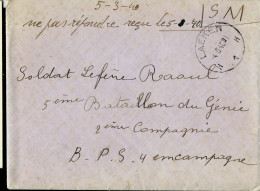 5-3-40
SM
ne pas répondre reçu le 5-3-40
LAEKEN
Soldat Lefère Raoul
5ième Bataillon du Génie
2ième Compagnie
B.P.S. 4 en campagne